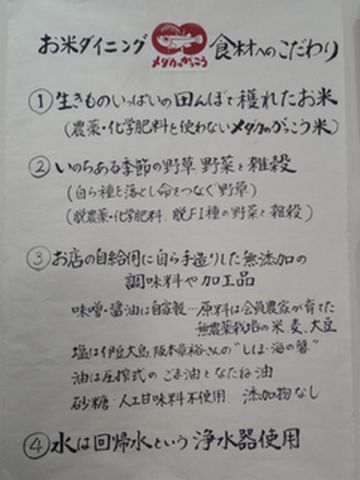 お米ダイニング メダカのがっこう 食材へのこだわり
① 生きものいっぱいの田んぼで穫れたお米
(農薬・化学肥料を使わないメダカのがっこう米)
② いのちある季節の野草 野菜と雑穀
(自ら種を落とし命をつなぐ野草)
(脱農薬・化学肥料、脱F1種の野菜と雑穀)
③ お店の自給用に自ら手造りした無添加の
調味料や加工品
味噌・醤油は自家製…原料は会員農家が育てた
無農薬栽培の米、麦、大豆
塩は伊豆大島、阪本章裕さんの"しほ・海の馨"
油は圧搾式のごま油となたね油
砂糖・人工甘味料不使用 添加物なし
④ 水は回帰水という浄水器使用